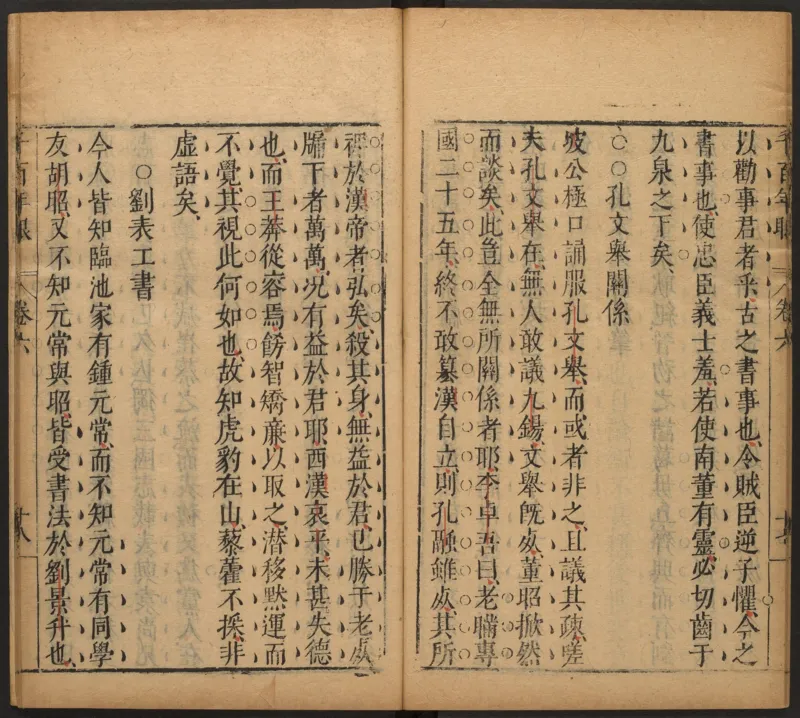 千百年眼 卷六
以勸事君者乎古之書事也令賊臣逆子懼今之
書事也使忠臣義士羞若使南董有靈必切齒于
九泉之下矣
○○孔文舉關係
坡公極口誦服孔文舉而或者非之且議其疎嗟
夫孔文舉在無人敢議九錫文舉旣死董昭掀然
而談矣此豈全無所關係者耶李卓吾曰老瞞專
國二十五年終不敢篡漢自立則孔融雖死其所
裨於漢帝者弘矣殺其身無益於君已勝于老死
牖下者萬萬况有益於君耶西漢哀平未甚失德
也而王莽從容焉餝智矯廉以取之潜移默運而
不覺其視此何如也故知虎豹在山藜藿不採非
虛語矣
○劉表工書
今人皆知臨池家有鍾元常而不知元常有同學
友胡昭又不知元常與昭皆受書法於劉景升也
千百年眼 卷六